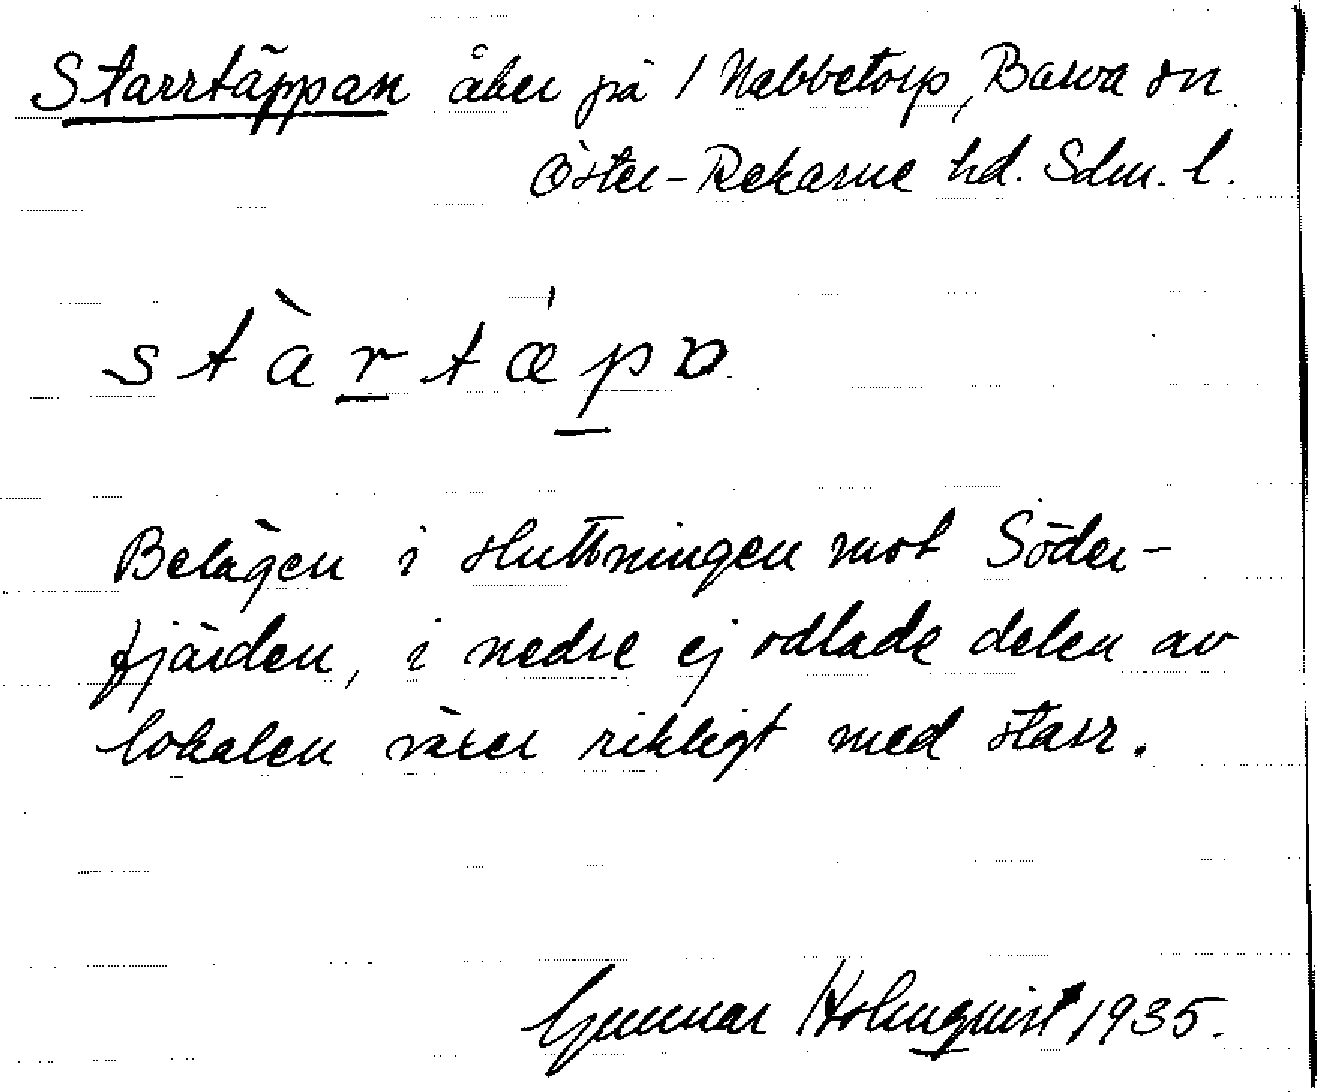 Starrtäppan åker på / Nabbetorp, Barva sn
Öster-Rekarne hd. Sdm. l.
stàrtæ̍pa
Belägen i sluttningen mot Söder-
fjärden, i nedre ej odlade delen av
lokalen växer rikligt med starr.
Gunnar Holmquist 1935.